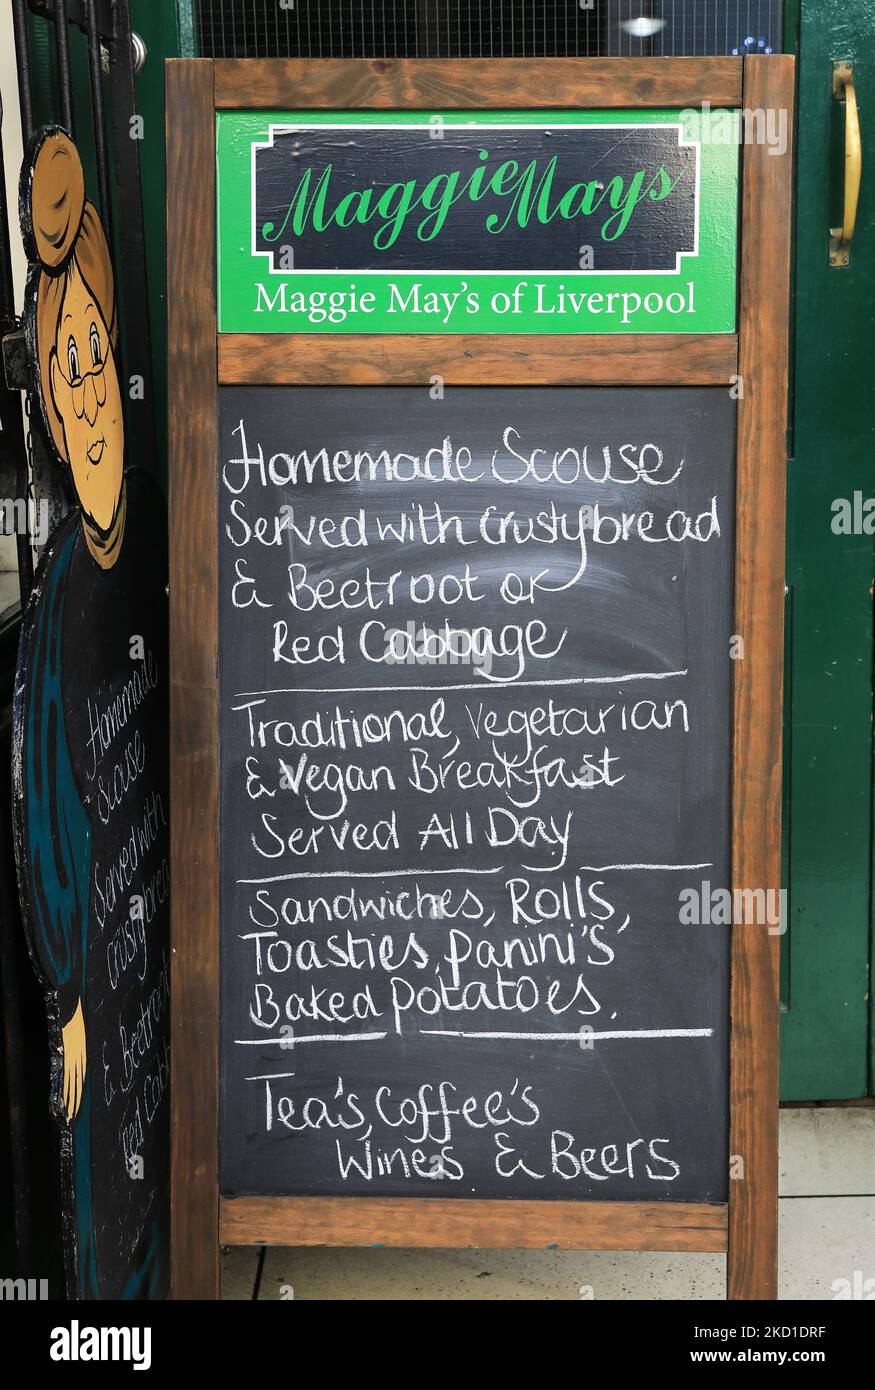 Maggie Mays
Maggie May's of Liverpool
Homemade Scouse
Served with Crusty bread
& Beetroot or
Red Cabbage
Traditional, Vegetarian
& Vegan Breakfast
Served All Day
Sandwiches, Rolls,
Toasties, Panini's
Baked Potatoes.
Tea's, Coffee's
Wines & Beers
Homemade
Scouse
Served with
Crusty bre
& Beetroo
Red Cabb
alamy
Image ID: 2KD1DRF
www.alamy.com